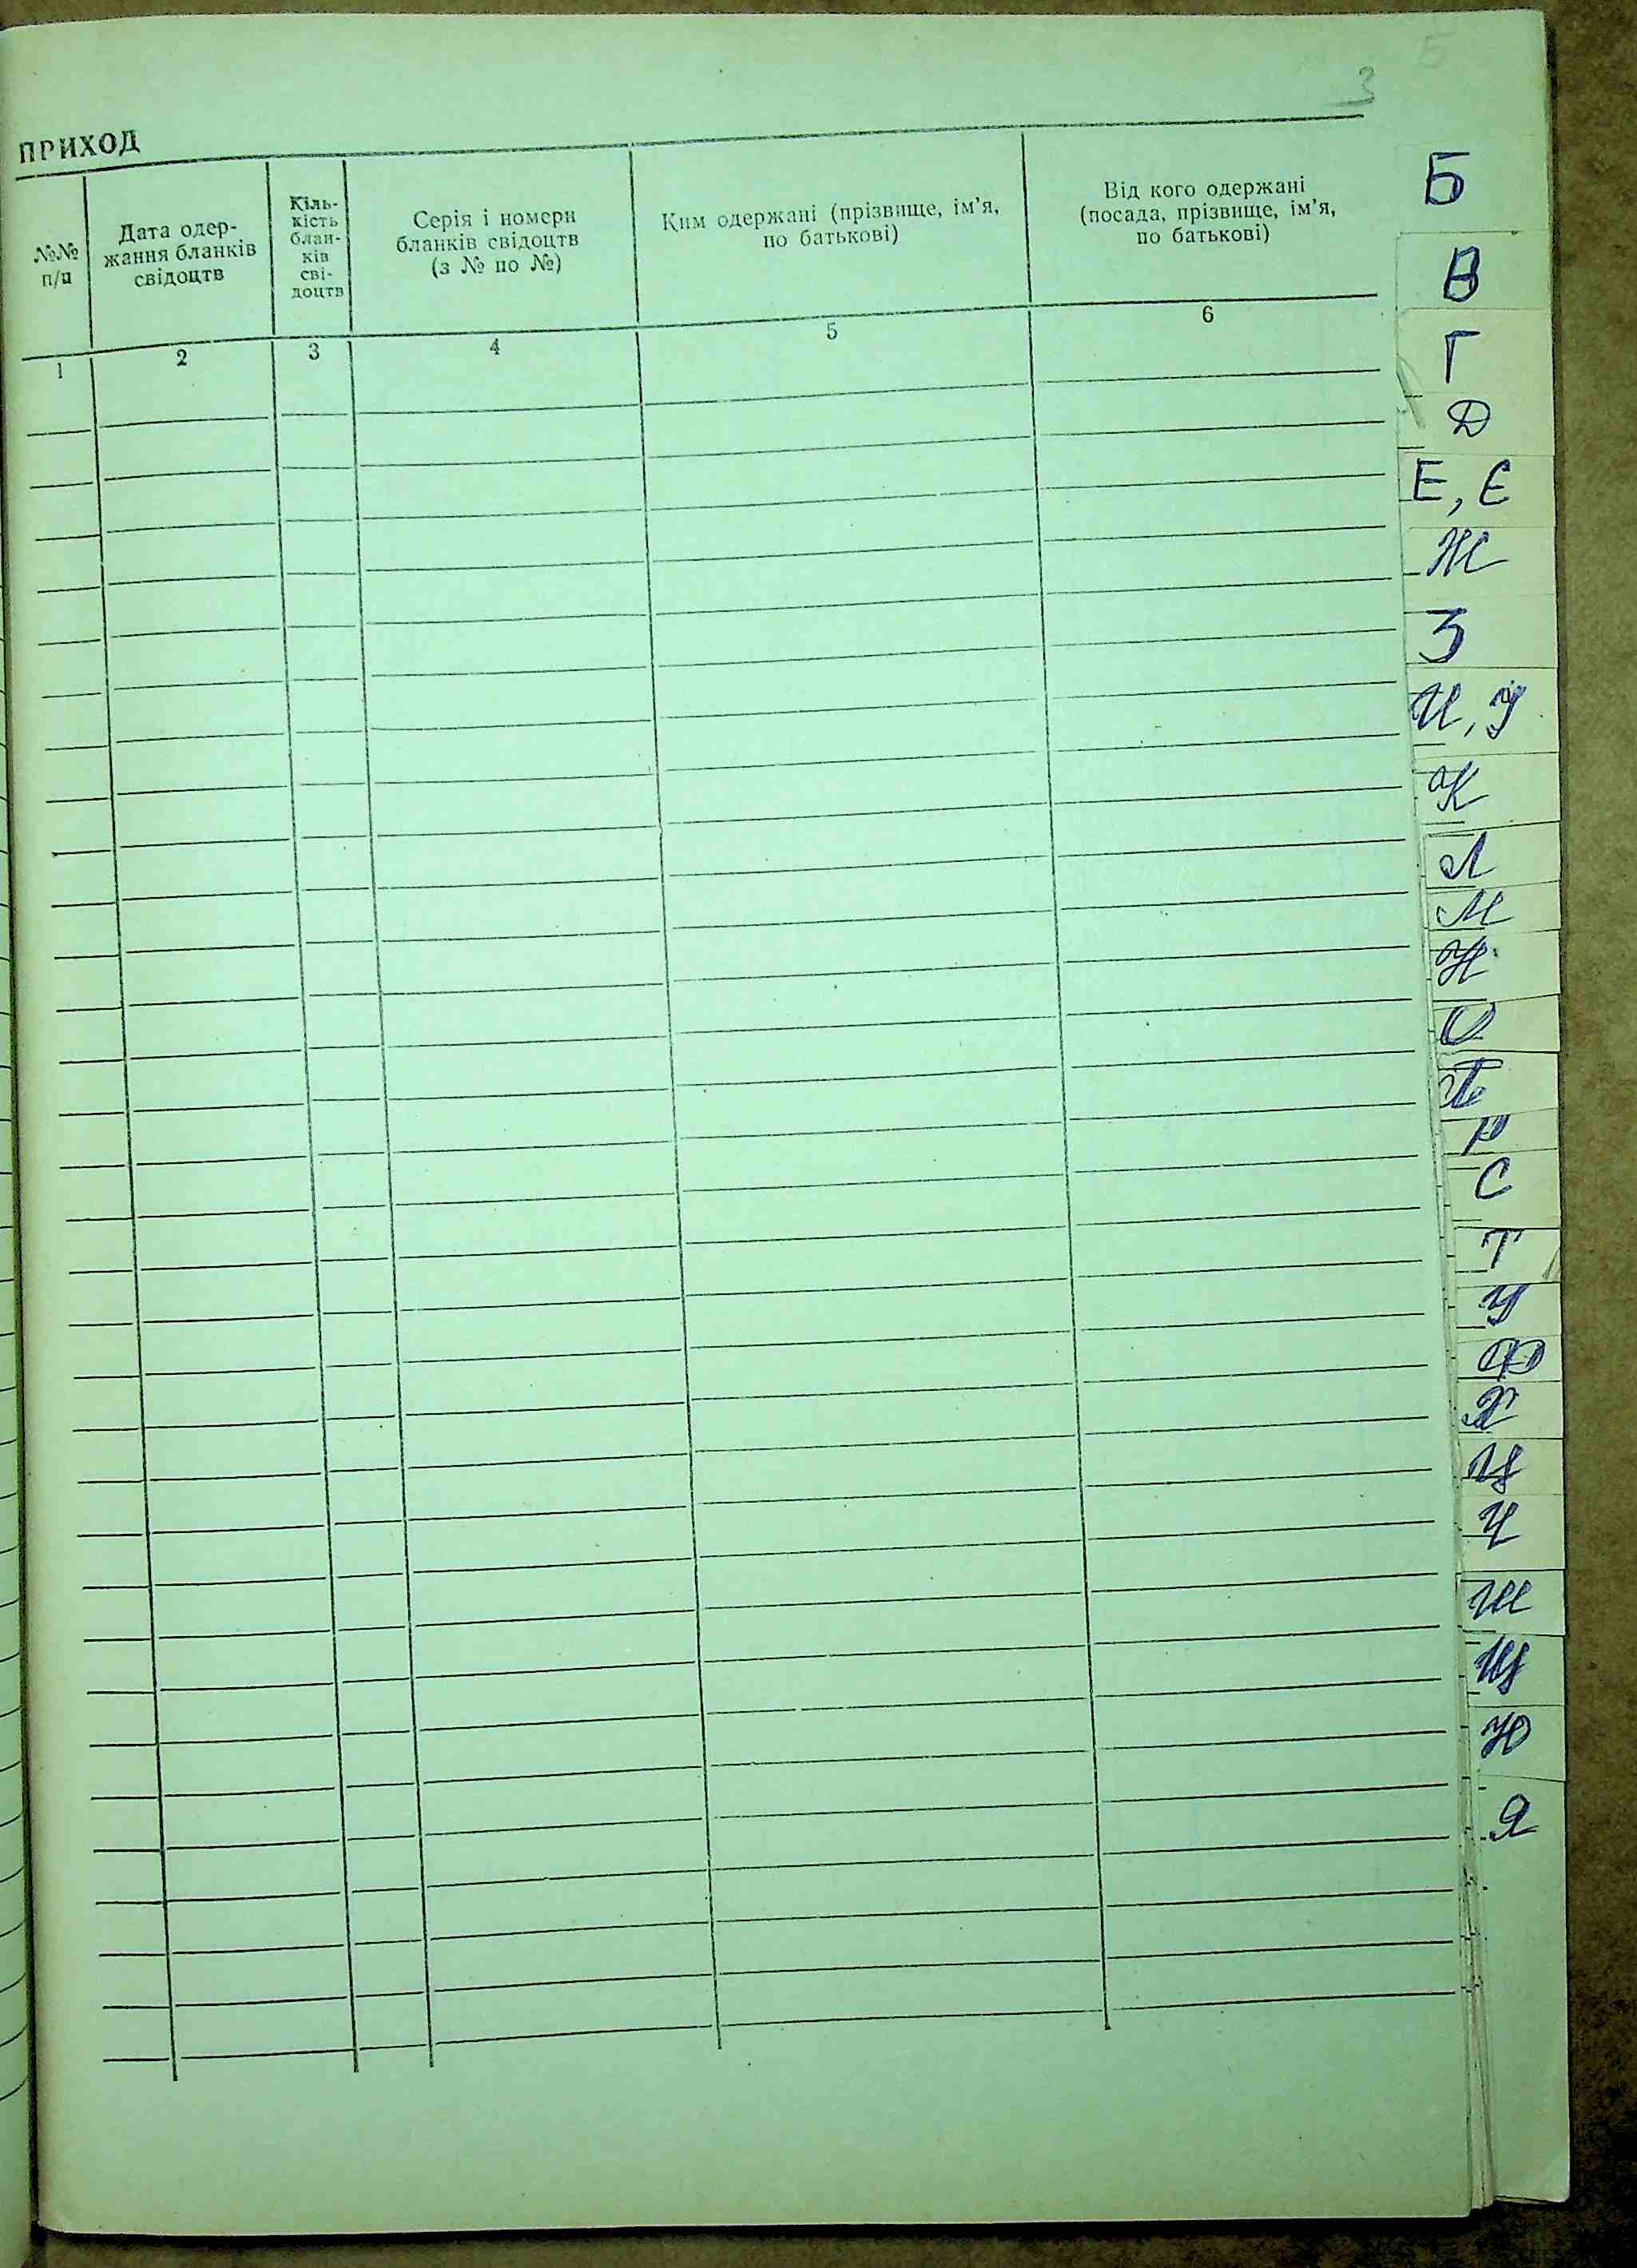 5
3
ПРИХОД
№№
п/п
Дата одер-
жання бланків
свідоцтв
Кіль-
кість
блан-
ків
сві-
доцтв
Серія і номери
бланків свідоцтв
(з № по №)
Ким одержані (прізвище, ім’я,
по батькові)
Від кого одержані
(посада, прізвище, ім’я,
по батькові)
1
2
3
4
5
6
Б
В
Г
Д
Е, Є
Ж
З
И, У
К
Л
М
Н
О
П
Р
С
Т
У
Ф
Х
Ц
Ч
Ш
Щ
Ю
Я